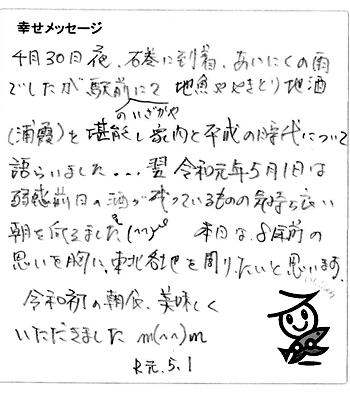 幸せメッセージ
4月30日夜、石巻に到着、あいにくの雨
でしたが駅前にて 地魚ややきとり地酒
のいざかや
(浦霞)を堪能し家内と平成の時代について
語らいました...翌令和元年5月1日は
弱感前日の酒が残っているものの気持ち良い
朝を迎えました(^^)。 本日は、8年前の
思いを胸に、東北各地を周りたいと思います。
令和初の朝食、美味しく
いただきました m(^^)m
R元.5.1